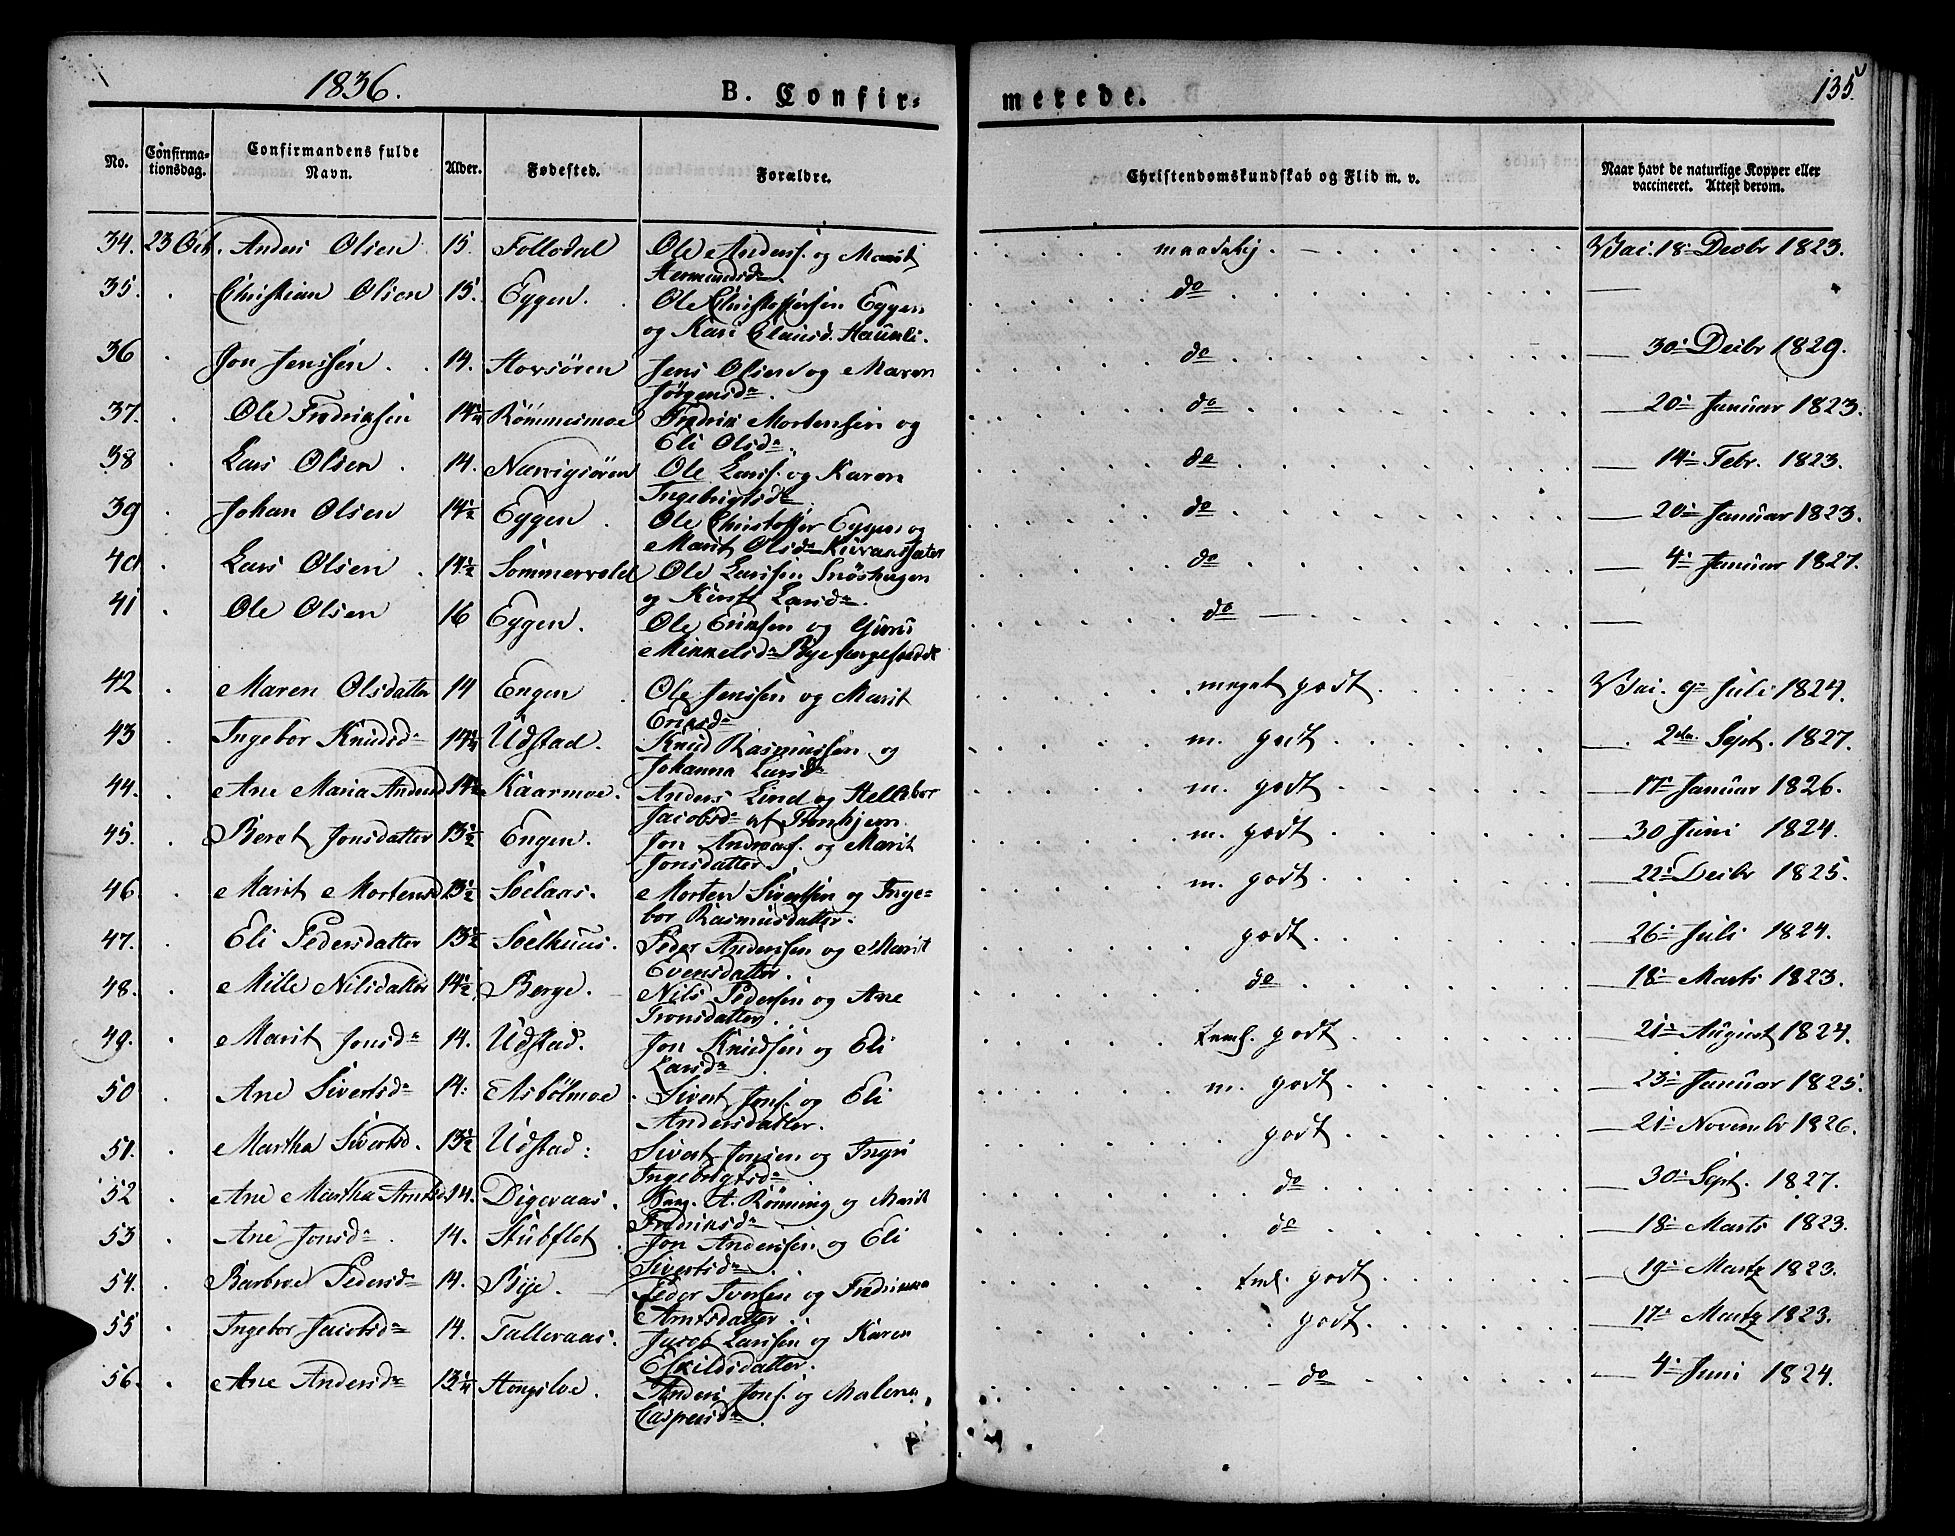 1836. B. Confir- merede. 135
No. Confirmationsdag. Confirmandens fulde Navn. Alder. Fødested. Forældre. Christendomskundskab og Flid m. v. Naar havt de naturlige Kopper eller vaccineret. Attest derom.
34. 23 Oct. Anders Olsen 15. Follodal Ole Anders. og Marit maadelig. Vac. 18 Decbr 1823.
35. Christian Olsen 15. Eggen. Ole Christophersen Eggen do
og Kari Clausd.
36 Jon Jenssen. 14. Jens Olsen og Maren do 30 Decbr 1829.
Jørgensd.
37. Ole Fredriksen Rømmesmoe Fredrik Mortensen og do 20 Januar 1823.
Eli Olsd.
38 Lars Olsen 14. Ole Lars. og Karen do 14 Febr. 1823.
Ingebrigtsd.
39 Johan Olsen 14½ Eggen Ole Christoffer Eggen og do 20 Januar 1823.
Marit Olsd.
40 Lars Olsen 14½ Sommervold Ole Larssen Snøshagen do 4 Januar 1827.
og Kirsti Larsd.
41 Ole Olsen 16 Eggen. Ole Eriksen og Guru do
Mikkelsd.
42 Maren Olsdatter 14 Engen Ole Jenssen og Marit meget godt. Vac. 9 Juli 1824.
Eriksd.
43 Ingebor Knudsd. Udstad. Knud Rasmussen og m. godt 2den Sept. 1827.
Johanna Larsd.
44. Ane Maria Andersd 14½ Kaarmoe. Anders Lind og Hellebor m. godt 17 Januar 1826.
Jacobsd. af Tronhjem.
45. Beret Jonsdatter 13½ Engen. Jon Andreas. og Marit m. godt 30 Juni 1824.
Jonsdatter.
46 Marit Mortensd 13½ Solaas. Morten Sivertsen og Inge- m. godt 22 Decbr 1825.
bor Rasmusdatter.
47. Eli Pedersdatter 13½ Solhuus. Peder Anderssen og Marit godt. 26 Juli 1824.
Evensdatter.
48. Mille Nilsdatter 14½ Berge. Nils Pedersen og Ane do 18 Marts 1823.
Tronsdatter.
49. Marit Jonsd. 14. Udstad. Jon Knudsen og Eli teml. godt 21 August 1824.
Larsd.
50 Ane Sivertsd. 14. Asbølmoe Sivert Jons. og Eli m. godt 23 Januar 1825.
Andersdatter.
51. Martha Sivertsd. 13½ Udstad: Sivert Jonsen og Ingri godt 21 November 1826.
Ingebrigtsd.
52 Ane Martha Arntsd 14. Digeraas. A. Rønning og Marit do 30 Sept. 1827.
Fredriksd.
53 Ane Jonsd. 14. Stubflot Jon Anderssen og Eli do 18 Marts 1823.
Sivertsd.
54. Barbroe Pedersd. 14. Bye. Peder Iversen og Fredrikka tml. godt 19 Martz 1823.
Arntsdatter
55 Ingebor Jacobsd. 14. Talleraas. Jacob Larssen og Karen godt 17 Martz 1823.
Eskildsdatter.
56. Ane Andersd. 13¼ Hongsloe. Anders Jons. og Malena do 4 Juni 1824.
Caspersd.